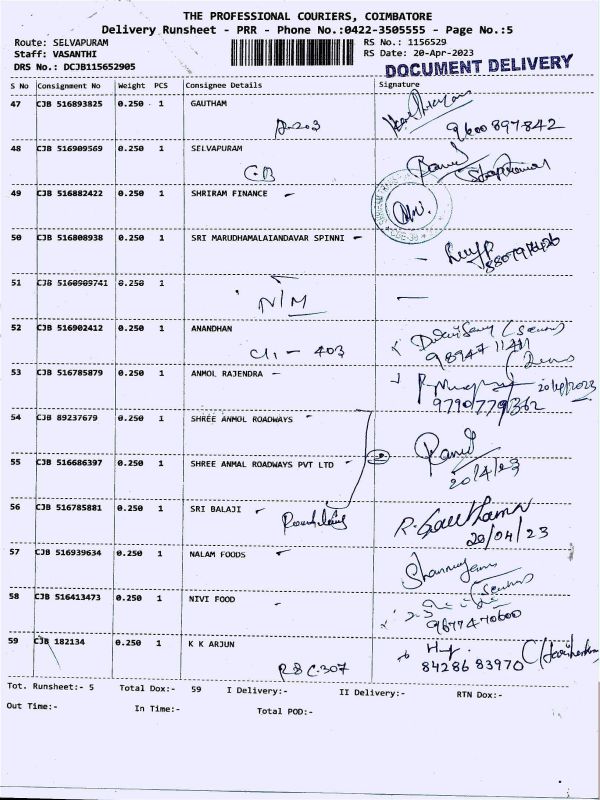 THE PROFESSIONAL COURIERS, COIMBATORE
Delivery Runsheet - PRR - Phone No.:0422-3505555 - Page No.:5
Route: SELVAPURAM RS No.: 1156529
Staff: VASANTHI RS Date: 20-Apr-2023
DRS No.: DCJB115652905 DOCUMENT DELIVERY
S No Consignment No Weight PCS Consignee Details Signature
47 CJB 516893825 0.250 1 GAUTHAM
D-203 9600897842
48 CJB 516909569 0.250 1 SELVAPURAM
C-B
49 CJB 516882422 0.250 1 SHRIRAM FINANCE -
50 CJB 516808938 0.250 1 SRI MARUDHAMALAIANDAVAR SPINNI -
51 CJB 5160909741 0.250 1
N/M
52 CJB 516902412 0.250 1 ANANDHAN
C11 - 403 98947 11411
53 CJB 516785879 0.250 1 ANMOL RAJENDRA -
20/4/2023
9790779362
54 CJB 89237679 0.250 1 SHREE ANMOL ROADWAYS
55 CJB 516686397 0.250 1 SHREE ANMAL ROADWAYS PVT LTD
20/4/23
56 CJB 516785881 0.250 1 SRI BALAJI
R. Gauthaman
20/04/23
57 CJB 516939634 0.250 1 NALAM FOODS
58 CJB 516413473 0.250 1 NIVI FOOD
9677470600
59 CJB 182134 0.250 1 K K ARJUN
R8 C-307 84286 83970
Tot. Runsheet:- 5 Total Dox:- 59 I Delivery:- II Delivery:- RTN Dox:-
Out Time:- In Time:- Total POD:-